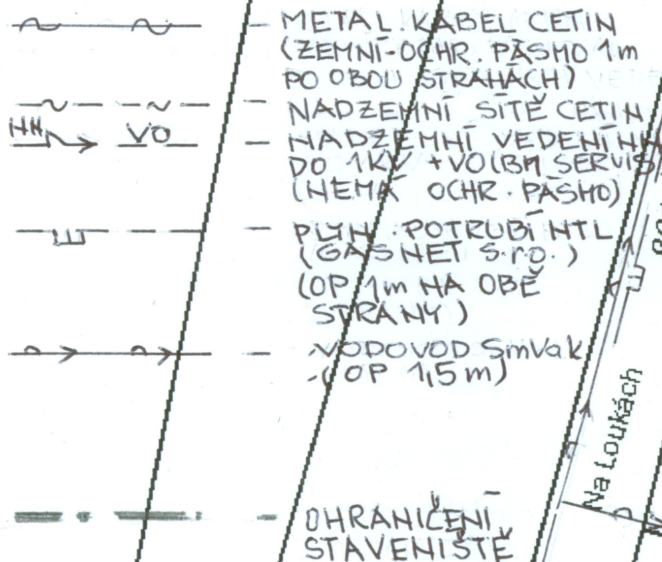 METAL. KABEL CETIN
(ZEMNÍ-OCHR. PÁSMO 1m
PO OBOU STRANÁCH)
NADZEMNÍ SÍTĚ CETIN
NN VO NADZEMNÍ VEDENÍ NN
DO 1KV + VO (BM SERVIS)
(NEMÁ OCHR. PÁSMO)
PLYN. POTRUBÍ NTL
(GASNET s.r.o.)
(OP 1m NA OBĚ
STRANY)
VODOVOD SmVaK
(OP 1,5m)
Na Loukách
OHRANIČENÍ
STAVENIŠTĚ